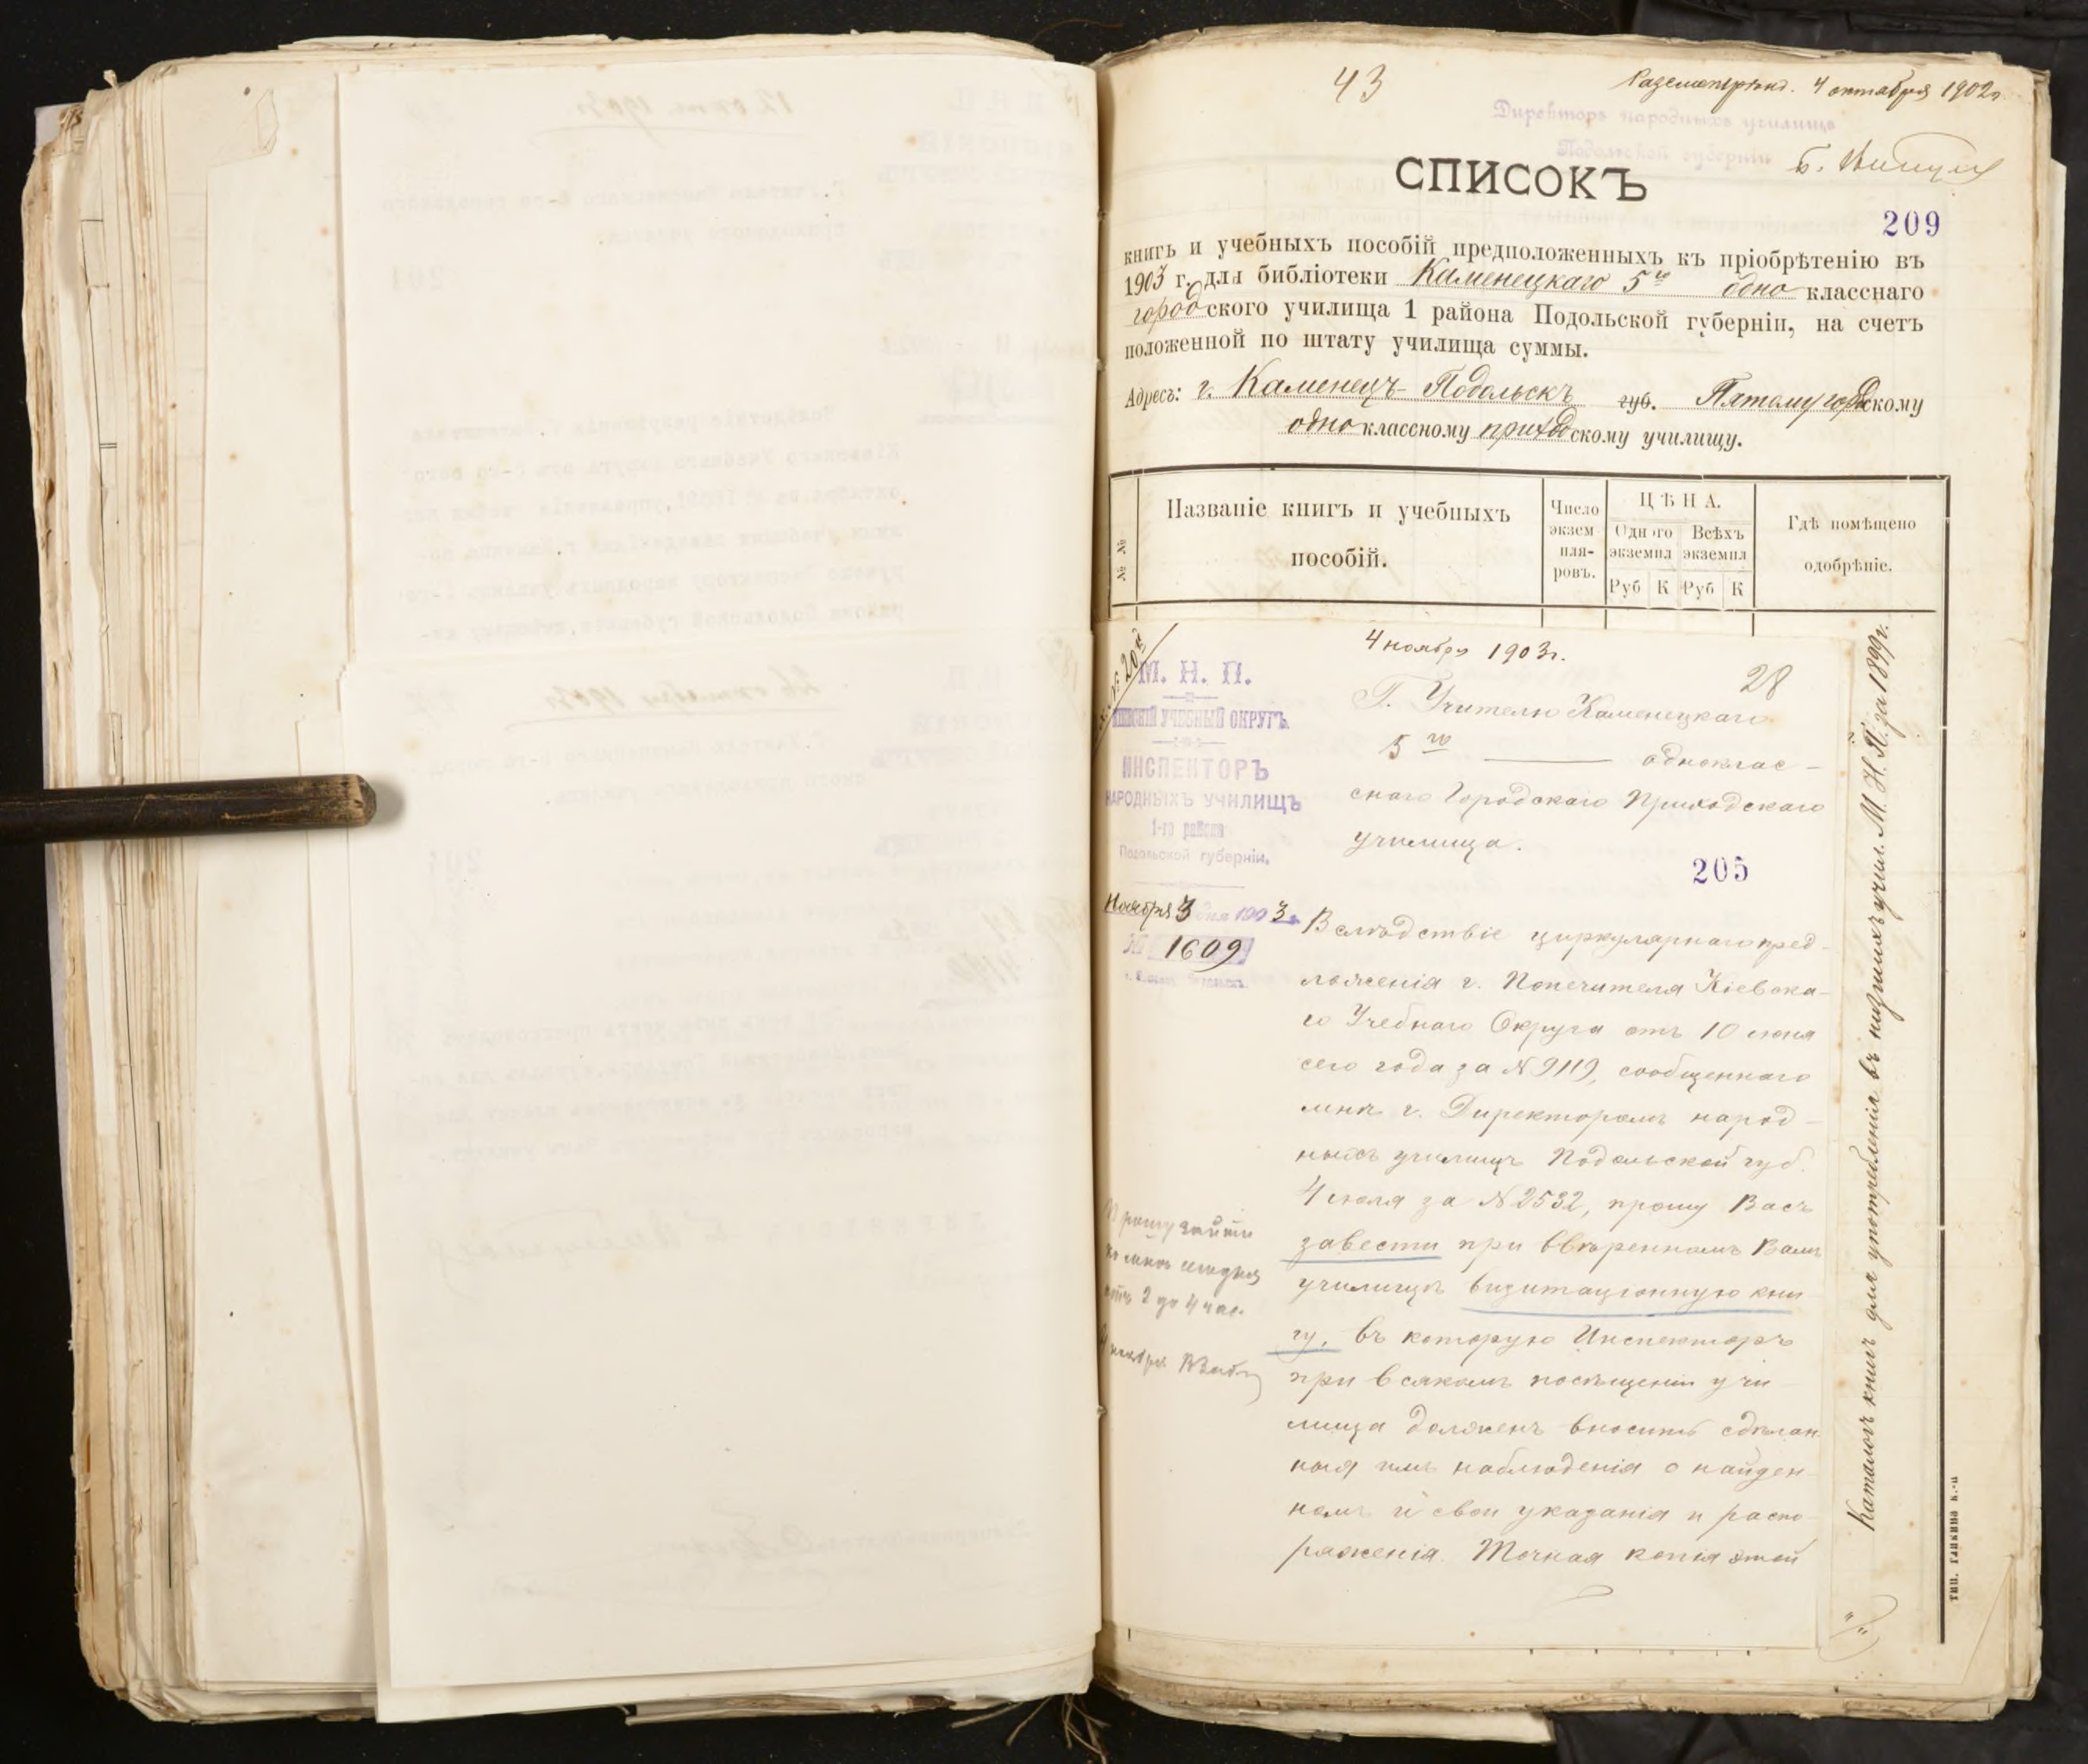 43
4 октября 1902г.
Директоръ народныхъ училищъ
Подольской губерніи
СПИСОКЪ
209
книгъ и учебныхъ пособій предположенныхъ къ пріобрѣтенію въ
1903 г. для библіотеки Каменецкаго 5го одно класснаго
городского училища 1 района Подольской губерніи, на счетъ
положенной по штату училища суммы.
Адресъ: г. Каменецъ-Подольскъ губ. Пятому городскому
одноклассному приходскому училищу.
№ №
Названіе книгъ и учебныхъ
пособій.
Число
экзем
пля-
ровъ.
ЦѢНА.
Одного
экземпл
Всѣхъ
экземпл
Руб К Руб К
Гдѣ помѣщено
одобрѣніе.
4 ноября 1903г.
28
М. Н. П.
КІЕВСКІЙ УЧЕБНЫЙ ОКРУГЪ.
ИНСПЕКТОРЪ
НАРОДНЫХЪ УЧИЛИЩЪ
1-го района
Подольской губерніи.
Ноября 3 дня 1903 г.
№ 1609
Г. Учителю Каменецкаго
5го однклас-
снаго Городскаго Приходскаго
училища.
205
Вслѣдствіе циркулярнаго пред-
ложенія г. Попечителя Кіевска-
го Учебнаго Округа отъ 10 іюня
сего года за № 9119, сообщеннаго
мнѣ г. Директоромъ народ-
ныхъ училищъ Подольской губ.
4 іюля за № 2532, прошу Васъ
завести при ввѣренномъ Вамъ
училищѣ визитаціонную кни
гу, въ которую Инспекторъ
при всякомъ посѣщеніи учи
лища долженъ вносить сдѣлан
ныя имъ наблюденія о найден-
номъ и свои указанія и распо-
ряженія. Точная копія этой
Прошу зайти
ко мнѣ сегодня
отъ 2 до 4 час.
4 ноября
Каталогъ книгъ для употребленія въ низшихъ учил. М. Н. П. за 1899г.